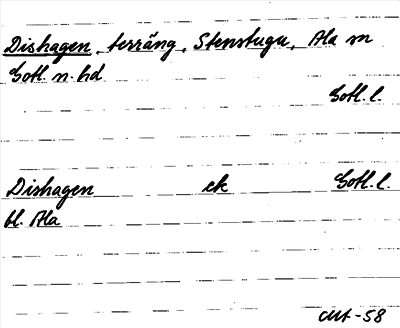 Dishagen, terräng, Stenstugu, Ala sn
Gotl. n. hd
Gotl. l.
Dishagen ek Gotl. l.
bl. Ala